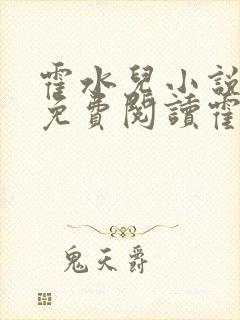 霍水兒小說
免費閱讀霍
鬼天爵